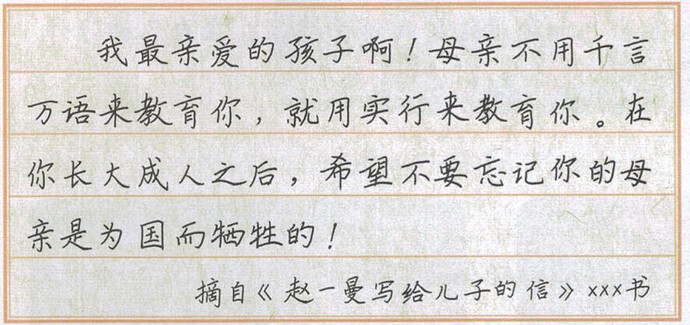 我最亲爱的孩子啊！母亲不用千言
万语来教育你，就用实行来教育你。在
你长大成人之后，希望不要忘记你的母
亲是为国而牺牲的！
摘自《赵一曼写给儿子的信》xxx书